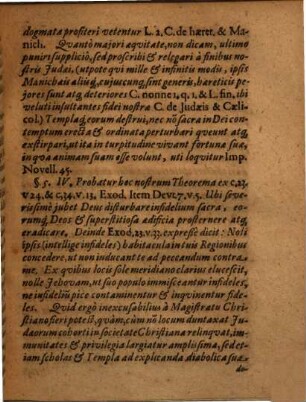 dogmata profiteri vetentur L. 2. C. de hæret. & Ma-
nich. Quantò majori æqvitate, non dicam, ultimo
puniri supplicio, sed proscribi & relegari à finibus no-
stris Judæi, (utpote qvi mille & infinitis modis, ipsis
Manichæis aliisq, cujuscunq, sint generis, hæreticis pe-
jores sunt atq, deteriores C. nonne 1. q. 1. & L. fin. ibi
veluti insultantes fidei nostræ C. de Judæis & Cæli-
col.) Templaq, eorum destrui, nec nõ sacra in Dei con-
temptum erecta & ordinata perturbari qveunt atq,
exstirpari, ut ita in turpitudine vivant fortuna suæ,
in qva animam suam esse volunt, uti loqvitur Imp.
Novell. 45.
§ 5. IV. Probatur hoc nostrum Theorema ex c. 23.
v 24. & c. 34. v. 13. Exod. Item Deut. 7. v. 5. Ubi seve-
rissimè jubet Deus disturbare infidelium sacra, eo-
rumq, Deos & superstitiosa ædificia prosternere atq,
eradicare. Deinde Exod. 23. v. 33. expressè dicit: Noli
ipsis (intellige infideles) habitacula in tuis Regionibus
concedere, ut non inducant te ad peccandum contra
me. Ex qvibus locis sole meridiano clarius elucescit,
nolle Jehovam, ut suo populo immisceantur infideles,
ne infidelium pice contaminentur & inqvinentur fide-
les. Quid ergò inexcusabilius à Magistratu Chri-
stiano fieri potest, qvàm, cùm nõ locum duntaxat Ju-
dæorum cohorti in societate Christiana relinqvat, im-
munitates & privilegia largiatur amplissima, sed et-
iam scholas & Templa ad explicanda diabolica suæ
de-